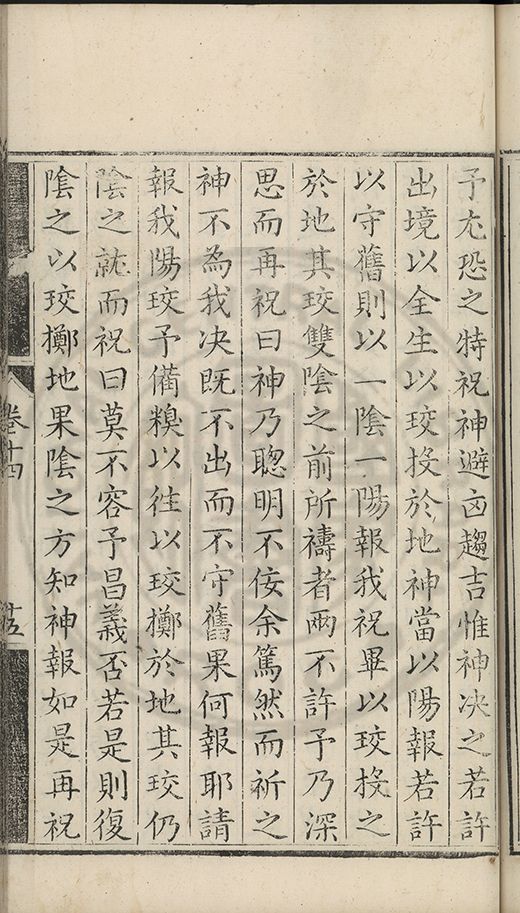 予尤恐之特祝神避凶趨吉惟神决之若許
出境以全生以珓投於地神當以陽報若許
以守舊則以一陰一陽報我祝畢以珓投之
於地其珓雙陰之前所禱者兩不許予乃深
思而再祝曰神乃聦明不佞余篤然而祈之
神不為我决既不出而不守舊果何報耶請
報我陽珓予備糗以徃以珓擲於地其珓仍
陰之就而祝曰莫不容予昌義否若是則復
陰之以珓擲地果陰之方知神報如是再祝
卷十四
十五